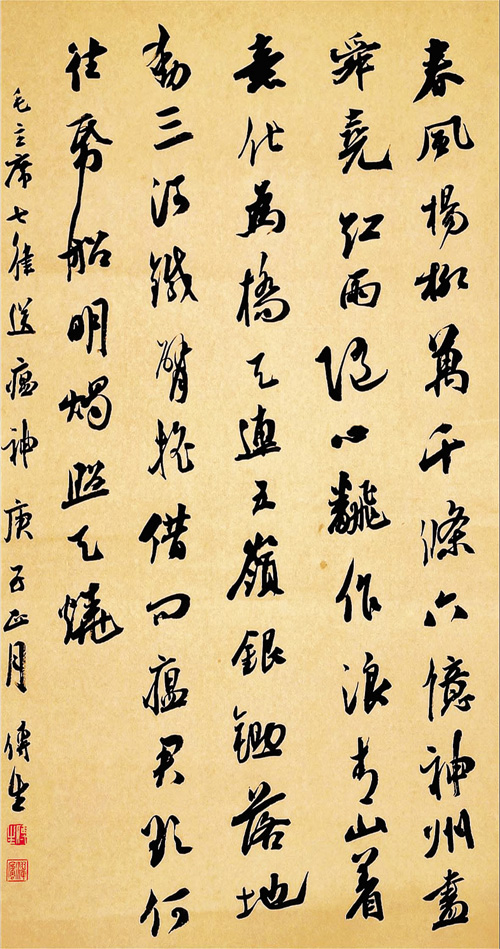 春風楊柳萬千條六億神州盡
舜堯紅雨隨心飜作浪青山着
意化為橋天連五嶺銀鋤落地
動三河鐵臂搖借問瘟君欲何
往帋船明燭照天燒
毛主席七律送瘟神 庚子正月